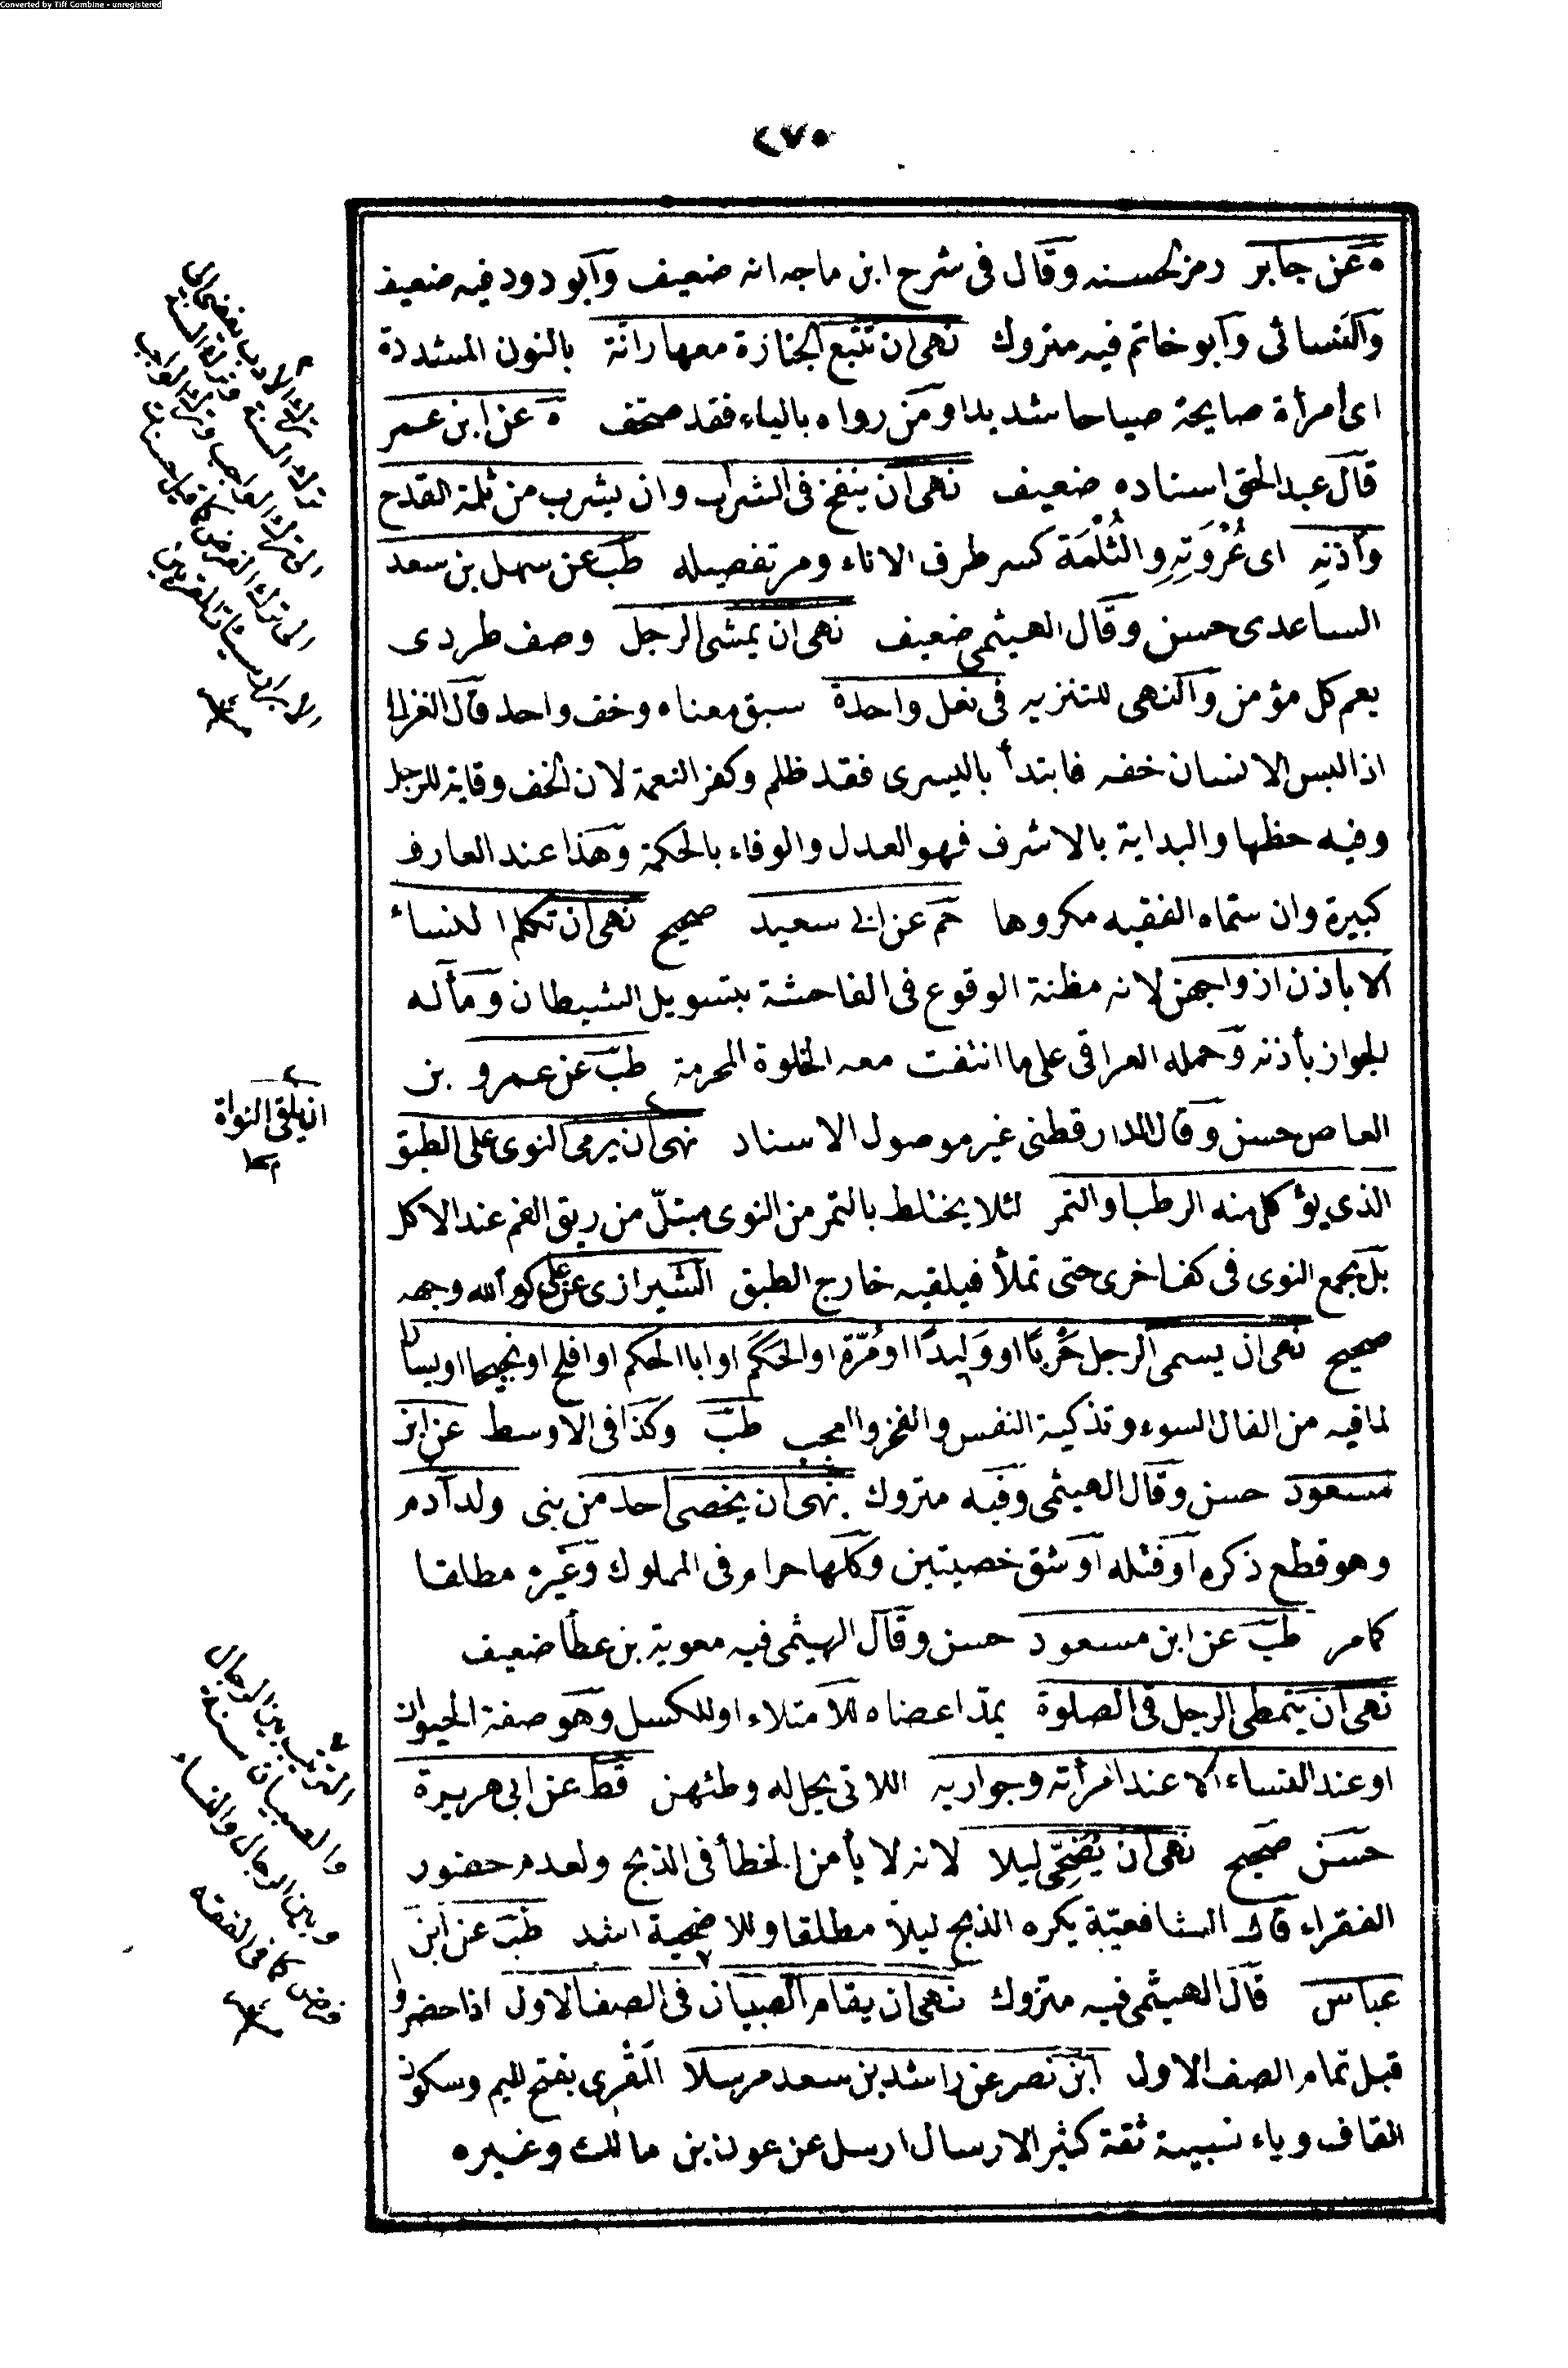 Converted by Tiff Combine - unregistered
٢٧٥
ه عن جابر رمز لحسنه وقال فى شرح ابن ماجه انه ضعيف وابو دود فيه ضعيف
والنسائى وابو خاتم فيه متروك نهى ان تتبع الجنازة معها رانّة بالنون المشددة
اى امرأة صايحة صياحا شديدا ومن رواه بالياء فقد صحّف ه عن ابن عمر
قال عبد الحق اسناده ضعيف نهى ان ينفخ فى الشراب وان يشرب من ثلمة القدح
وأذنِه اى عُرْوَتِهِ والثُلْمَة كسر طرف الاناء ومر تفصيله طب عن سهل بن سعد
الساعدى حسن وقال الهيثمى ضعيف نهى ان يمشى الرجل وصف طردى
يعم كل مؤمن والنهى للتنزيه فى نعل واحدة سبق معناه وخف واحد قال الغزالى
اذا لبس الانسان خفه فابتدأ باليسرى فقد ظلم وكفر النعمة لان الخف وقاية للرجل
وفيه حظها والبداية بالاشرف فهو العدل والوفاء بالحكمة وهذا عند العارف
كبيرة وان سمّاه الفقيه مكروها حم عن ابى سعيد صحيح نهى ان تكلم النساء
الا باذن ازواجهن لانه مظنة الوقوع فى الفاحشة بتسويل الشيطان ومأله
لجواز بأذنه وحمله العراقى على ما انتفت معه الخلوة المحرمة طب عن عمرو بن
العاص حسن وقال الدارقطنى غير موصول الاسناد نهى ان يرمى النوى على الطبق
الذى يؤكل منه الرطب او التمر لئلا يختلط بالتمر من النوى مبتلّ من ريق الفم عند الاكل
بل يجمع النوى فى كف اخرى حتى تملأ فيلقيه خارج الطبق الشيرازى عن على كرم الله وجهه
صحيح نهى ان يسمى الرجل حَرْبًا او وَلِيدًا او مُرّة او الحَكَم او ابا الحكم او افلح او نجيحا او يسارا
لما فيه من الفال السوء وتذكية النفس والفخر والعجب طب وكذا فى الاوسط عن ابن
مسعود حسن وقال الهيثمى وفيه متروك نهى ان يخصى احد من بنى ولد آدم
وهو قطع ذكره او فتله او شق خصيتين وكلها حرام فى المملوك وغيره مطلقا
كمامر طب عن ابن مسعود حسن وقال الهيثمى فيه معوية بن عطأ ضعيف
نهى ان يتمطى الرجل فى الصلوة يمدّ اعضاه للامتلاء او للكسل وهو صفة الحيوان
او عند النساء الا عند امرأته وجواريه اللاتى يحل له وطئهن قط عن ابى هريرة
حسن صحيح نهى ان يُضَحِّى ليلا لانه لا يأمن الخطأ فى الذبح ولعدم حضور
الفقراء قال الشافعيّة يكره الذبح ليلا مطلقا وللاضحية اشد طب عن ابن
عباس قال الهيثمى فيه متروك نهى ان يقام الصبيان فى الصف الاول اذا حضروا
قبل تمام الصف الاول ابن نصر عن راشد بن سعد مرسلا المَقْرى بفتح الميم وسكون
القاف وياء نسبية ثقة كثير الارسال ارسل عن عون بن مالك وغيره
ان يلقى النواة
الترتيب بين الرجال
والصبيان سنة
وبين الرجال والنساء
فرض كما فى الفقه